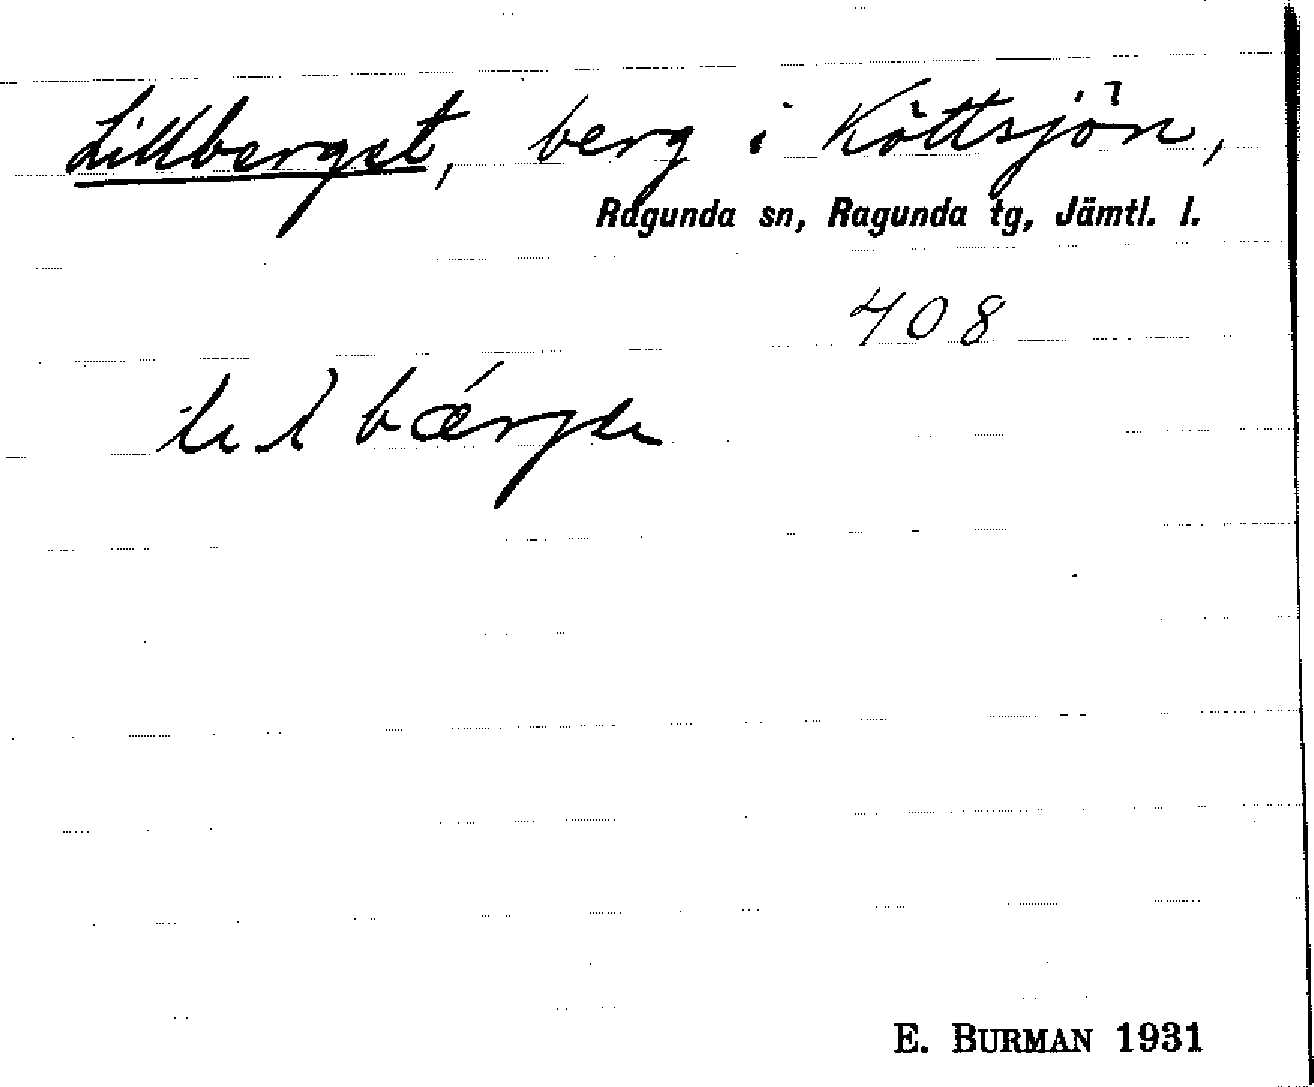 Lillberget, berg i Köttsjön,
Ragunda sn, Ragunda tg, Jämtl. l.
408
E. BURMAN 1931